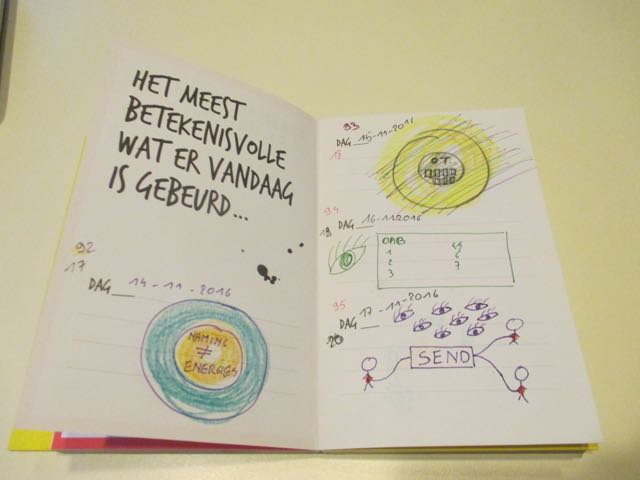 HET MEEST
BETEKENISVOLLE
WAT ER VANDAAG
IS GEBEURD...
92
17
DAG 14-11-2016
NAMING
≠
ENERGIES
93
DAG 15-11-2016
18
OT
94
19 DAG 16-11-2016
OAB
1 45
2 6
3 7
95
DAG 17-11-2016
20
SEND